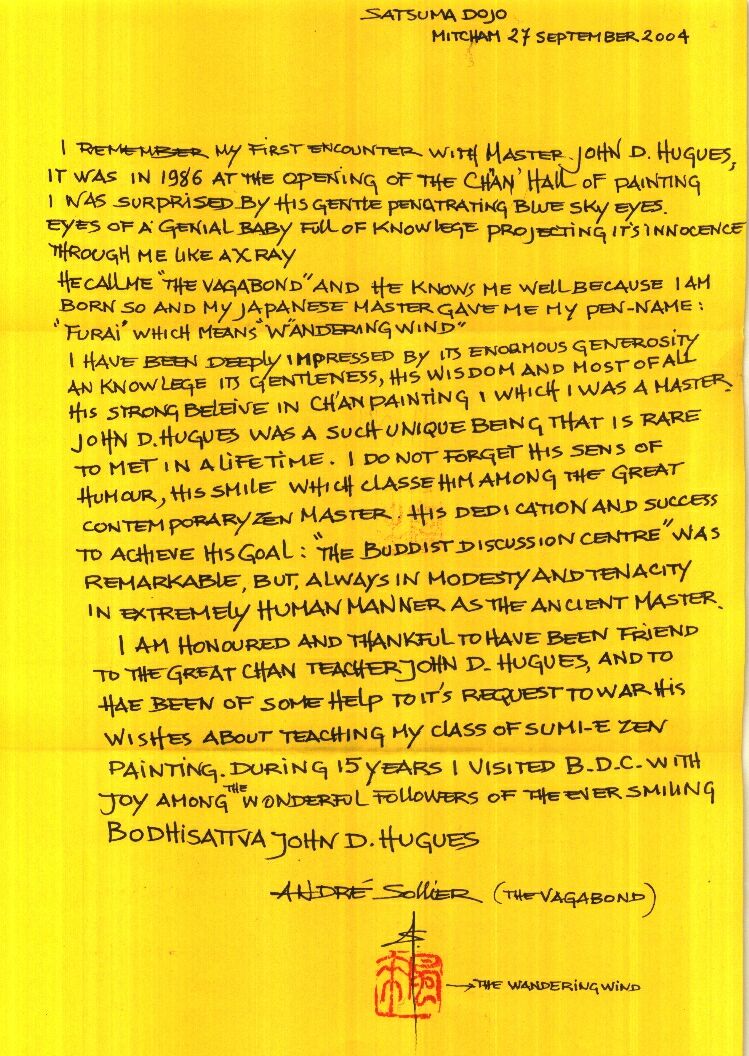 SATSUMA DOJO
MITCHAM 27 SEPTEMBER 2004
I REMEMBER MY FIRST ENCOUNTER WITH MASTER JOHN D. HUGUES,
IT WAS IN 1986 AT THE OPENING OF THE CH'AN' HALL OF PAINTING
I WAS SURPRISED BY HIS GENTLE PENATRATING BLUE SKY EYES.
EYES OF A GENIAL BABY FULL OF KNOWLEGE PROJECTING IT'S INNOCENCE
THROUGH ME LIKE A X RAY
HE CALL ME "THE VAGABOND" AND HE KNOWS ME WELL BECAUSE I AM
BORN SO AND MY JAPANESE MASTER GAVE ME MY PEN-NAME:
"FURAI" WHICH MEANS "WANDERING WIND"
I HAVE BEEN DEEPLY IMPRESSED BY ITS ENORMOUS GENEROSITY
AN KNOWLEGE ITS GENTLENESS, HIS WISDOM AND MOST OF ALL
HIS STRONG BELEIVE IN CH'AN PAINTING I WHICH I WAS A MASTER.
JOHN D. HUGUES WAS A SUCH UNIQUE BEING THAT IS RARE
TO MET IN A LIFE TIME. I DO NOT FORGET HIS SENS OF
HUMOUR, HIS SMILE WHICH CLASSE HIM AMONG THE GREAT
CONTEMPORARY ZEN MASTER. HIS DEDICATION AND SUCCESS
TO ACHIEVE HIS GOAL: "THE BUDDIST DISCUSSION CENTRE" WAS
REMARKABLE, BUT, ALWAYS IN MODESTY AND TENACITY
IN EXTREMELY HUMAN MANNER AS THE ANCIENT MASTER.
I AM HONOURED AND THANKFUL TO HAVE BEEN FRIEND
TO THE GREAT CHAN TEACHER JOHN D. HUGUES, AND TO
HAE BEEN OF SOME HELP TO IT'S REQUEST TO WAR HIS
WISHES ABOUT TEACHING MY CLASS OF SUMI-E ZEN
PAINTING. DURING 15 YEARS I VISITED B.D.C. WITH
JOY AMONG THE WONDERFUL FOLLOWERS OF THE EVER SMILING
BODHISATTVA JOHN D. HUGUES
ANDRÉ SOLLIER (THE VAGABOND)
→THE WANDERING WIND